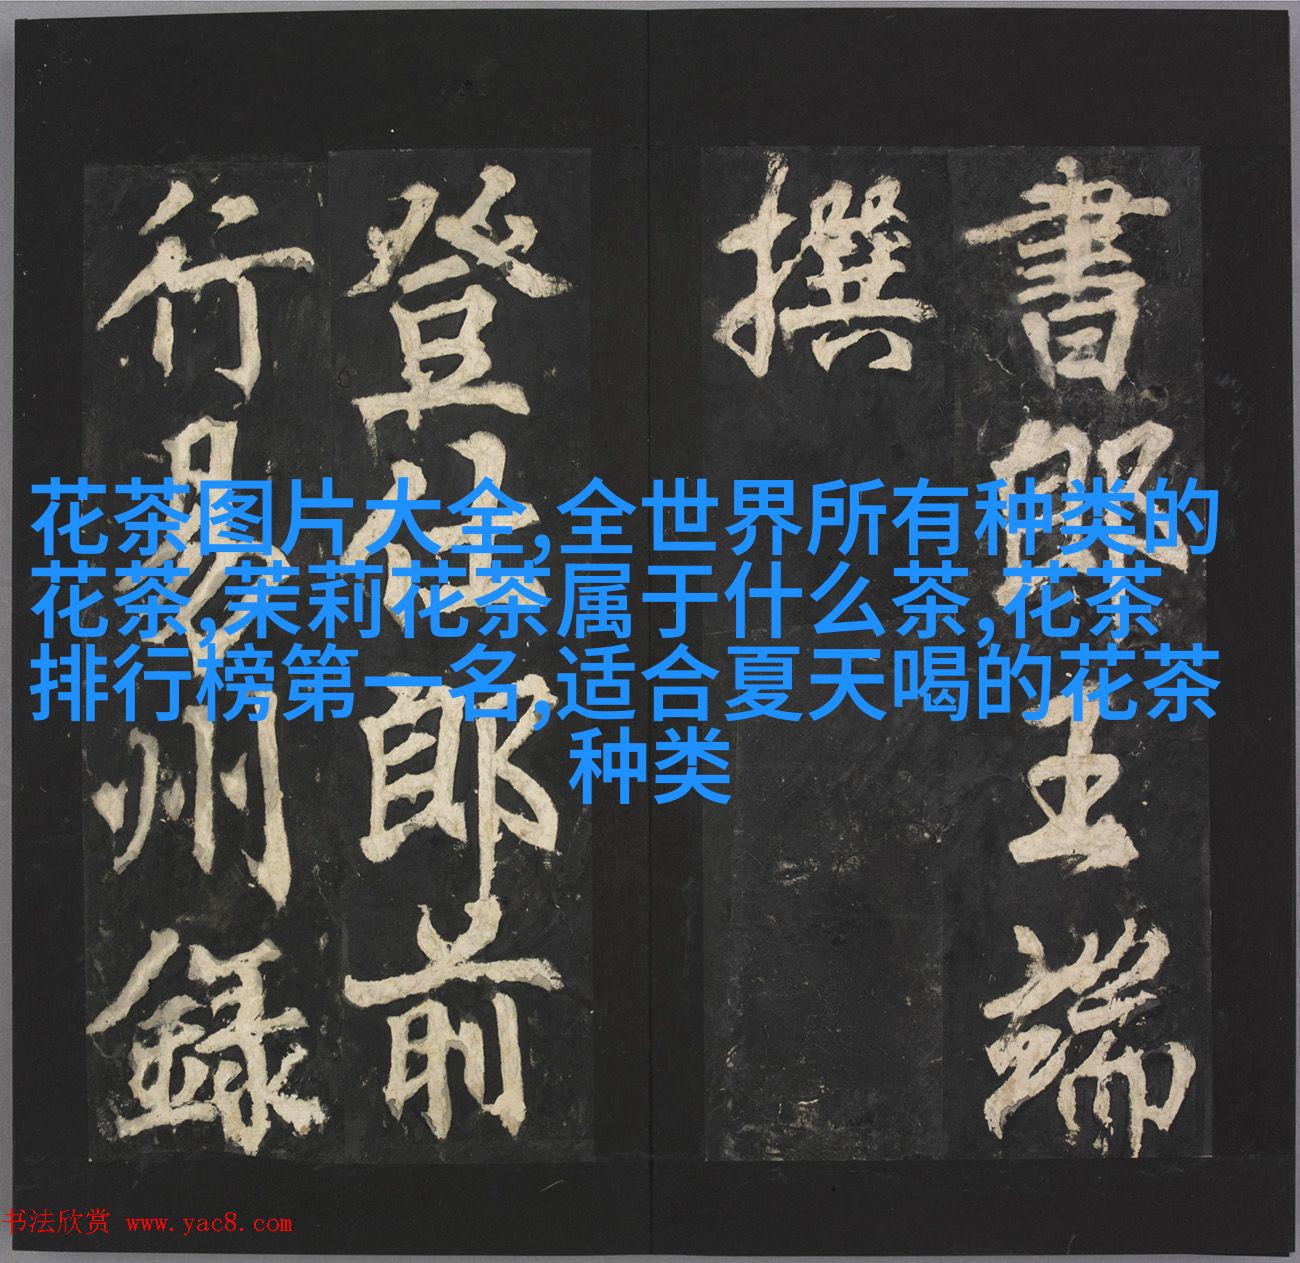 書郎王端
撰
登仕郎前
行易州錄
花茶图片大全,全世界所有种类的
花茶,茉莉花茶属于什么茶,花茶
排行榜第一名,适合夏天喝的花茶
种类
书法欣赏 www.yac8.com